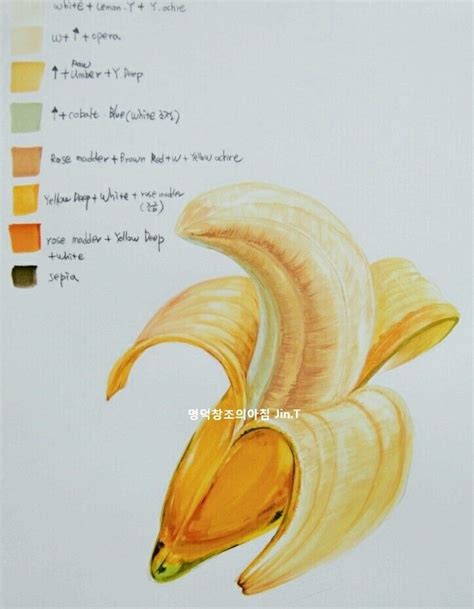 white + Lemon.Y + Y.ochre
w+↑+opera
↑+Raw Umber+Y.Deep
↑+cobalt Blue(white 조절)
Rose madder+Brown Red+w+Yellow ochre
Yellow Deep+White+rose madder
(조금)
rose madder+Yellow Deep
+white
sepia
명덕창조의아침 Jin.T